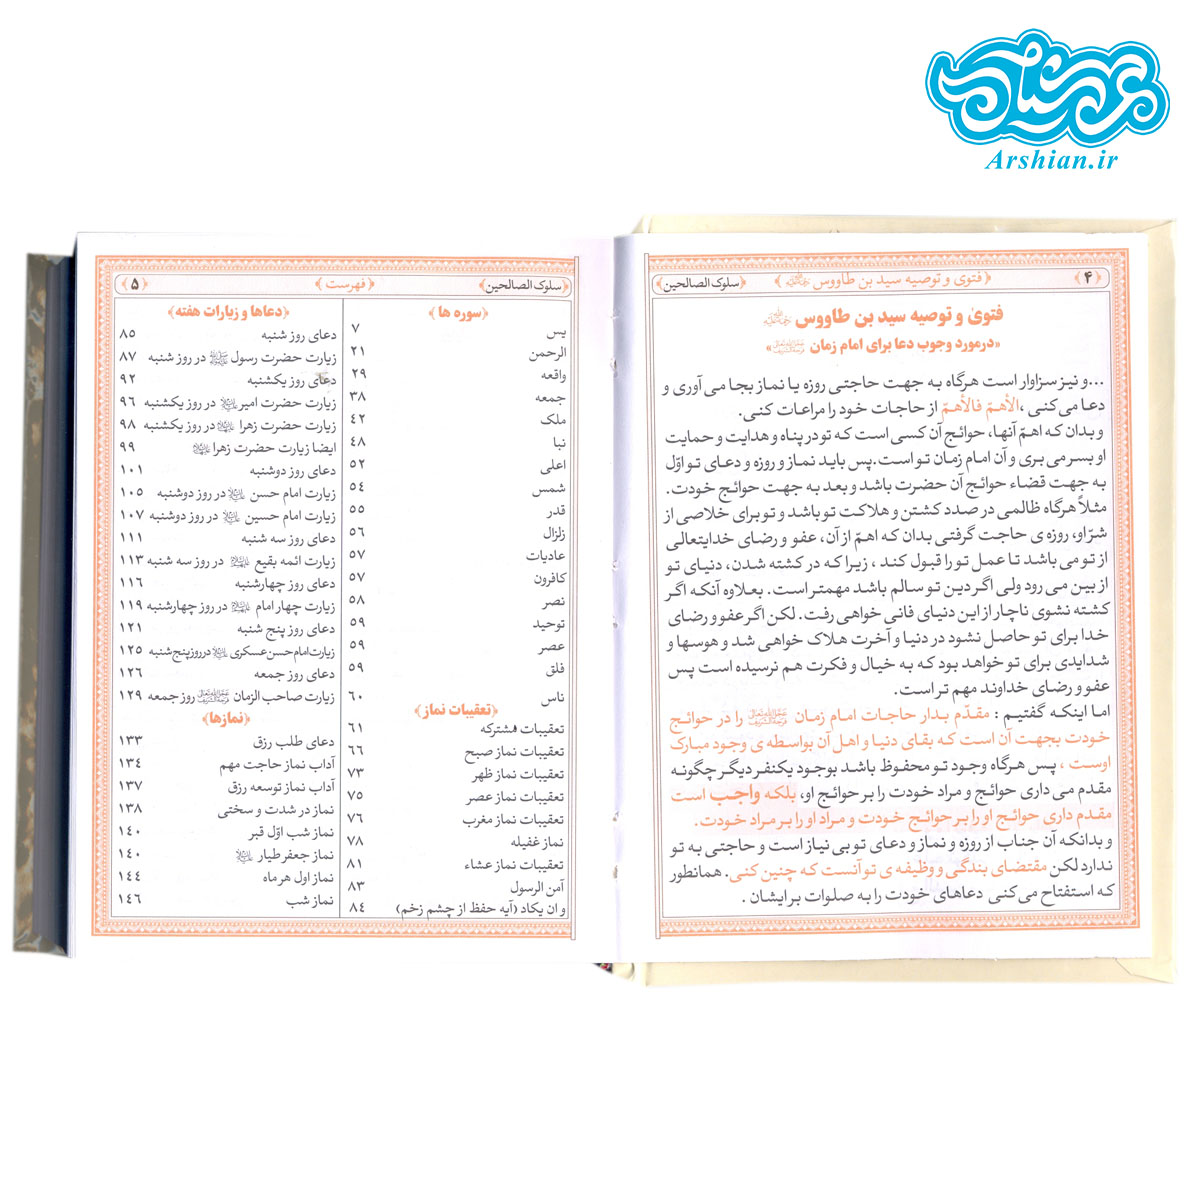 عرشیان
Arshian.ir
﴿۴﴾ ﴿فتوی و توصیه سید بن طاووس﴾ ﴿سلوک الصالحین﴾
فتویٰ و توصیه سید بن طاووس
«درمورد وجوب دعا برای امام زمان»
...و نیز سزاوار است هرگاه به جهت حاجتی روزه یا نماز بجا می آوری و
دعا می کنی ،الأهمّ فالأهمّ از حاجات خود را مراعات کنی.
و بدان که اهمّ آنها، حوائج آن کسی است که تو در پناه و هدایت و حمایت
او بسر می بری و آن امام زمان تو است.پس باید نماز و روزه و دعای تو اوّل
به جهت قضاء حوائج آن حضرت باشد و بعد به جهت حوائج خودت.
مثلاً هرگاه ظالمی در صدد کشتن و هلاکت تو باشد و تو برای خلاصی از
شرّ او، روزه ی حاجت گرفتی بدان که اهمّ از آن، عفو و رضای خدایتعالی
از تو می باشد تا عمل تو را قبول کند ، زیرا که در کشته شدن، دنیای تو
از بین می رود ولی اگر دین تو سالم باشد مهمتر است. بعلاوه آنکه اگر
کشته نشوی ناچار از این دنیای فانی خواهی رفت. لکن اگر عفو و رضای
خدا برای تو حاصل نشود در دنیا و آخرت هلاک خواهی شد و هوسها و
شدایدی برای تو خواهد بود که به خیال و فکرت هم نرسیده است پس
عفو و رضای خداوند مهم تر است.
اما اینکه گفتیم : مقدّم بدار حاجات امام زمان را در حوائج
خودت بجهت آن است که بقای دنیا و اهل آن بواسطه ی وجود مبارک
اوست ، پس هرگاه وجود تو محفوظ باشد بوجود یکنفر دیگر چگونه
مقدم می داری حوائج و مراد خودت را بر حوائج او، بلکه واجب است
مقدم داری حوائج او را بر حوائج خودت و مراد او را بر مراد خودت.
و بدانکه آن جناب از روزه و نماز و دعای تو بی نیاز است و حاجتی به تو
ندارد لکن مقتضای بندگی و وظیفه ی تو آنست که چنین کنی. همانطور
که استفتاح می کنی دعاهای خودت را به صلوات بر ایشان .
﴿سلوک الصالحین﴾ ﴿فهرست﴾ ﴿۵﴾
﴿سوره ها﴾
یس ۷
الرحمن ۲۱
واقعه ۲۹
جمعه ۳۸
ملک ۴۲
نبا ۴۸
اعلی ۵۲
شمس ۵۴
قدر ۵۵
زلزال ۵۶
عادیات ۵۷
کافرون ۵۷
نصر ۵۸
توحید ۵۹
عصر ۵۹
فلق ۵۹
ناس ۶۰
﴿تعقیبات نماز﴾
تعقیبات مشترکه ۶۱
تعقیبات نماز صبح ۶۶
تعقیبات نماز ظهر ۷۳
تعقیبات نماز عصر ۷۵
تعقیبات نماز مغرب ۷۶
نماز غفیله ۷۸
تعقیبات نماز عشاء ۸۱
آمن الرسول ۸۳
و ان یکاد (آیه حفظ از چشم زخم) ۸۴
﴿دعاها و زیارات هفته﴾
دعای روز شنبه ۸۵
زیارت حضرت رسول در روز شنبه ۸۷
دعای روز یکشنبه ۹۲
زیارت حضرت امیر در روز یکشنبه ۹۶
زیارت حضرت زهرا در روز یکشنبه ۹۸
ایضا زیارت حضرت زهرا ۹۹
دعای روز دوشنبه ۱۰۱
زیارت امام حسن در روز دوشنبه ۱۰۵
زیارت امام حسین در روز دوشنبه ۱۰۷
دعای روز سه شنبه ۱۱۱
زیارت ائمه بقیع در روز سه شنبه ۱۱۳
دعای روز چهارشنبه ۱۱۶
زیارت چهار امام در روز چهارشنبه ۱۱۹
دعای روز پنج شنبه ۱۲۱
زیارت امام حسن عسکری در روز پنج شنبه ۱۲۵
دعای روز جمعه ۱۲۶
زیارت صاحب الزمان روز جمعه ۱۲۹
﴿نمازها﴾
دعای طلب رزق ۱۳۳
آداب نماز حاجت مهم ۱۳۴
آداب نماز توسعه رزق ۱۳۷
نماز در شدت و سختی ۱۳۸
نماز شب اوّل قبر ۱۴۰
نماز جعفر طیار ۱۴۰
نماز اول هر ماه ۱۴۴
نماز شب ۱۴۶